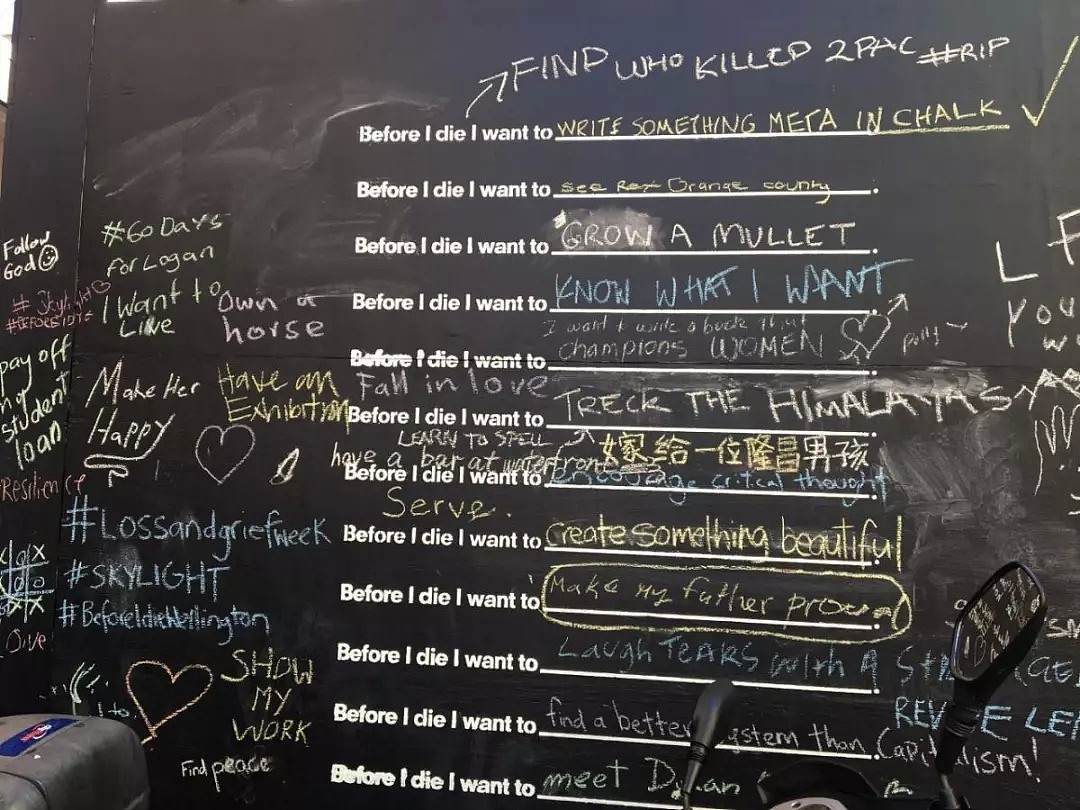 FIND WHO KILLED 2PAC #RIP
Before I die I want to WRITE SOMETHING META IN CHALK
Before I die I want to see Rex Orange county.
Before I die I want to GROW A MULLET.
Before I die I want to KNOW WHAT I WANT
I want to write a book that
champions WOMEN
Before I die I want to
Fall in love
Before I die I want to TRECK THE HIMALAYAS
LEARN TO SPELL
嫁给一位隆昌男孩
have a bar at waterfront
Before I die I want to encourage critical thought
Serve.
Before I die I want to create something beautiful
Before I die I want to Make my father proud
Before I die I want to Laugh TEARS with A
Before I die I want to find a better than
Before I die I want to meet
Follow
God
#GoDays
for Logan
I Want to
Live
own a
horse
pay off
my
student
loan
Make Her
Happy
Have an
Exhibition
Resilience
#Lossandgriefweek
#SKYLIGHT
#BeforeIdieWellington
SHOW
MY
WORK
Find peace